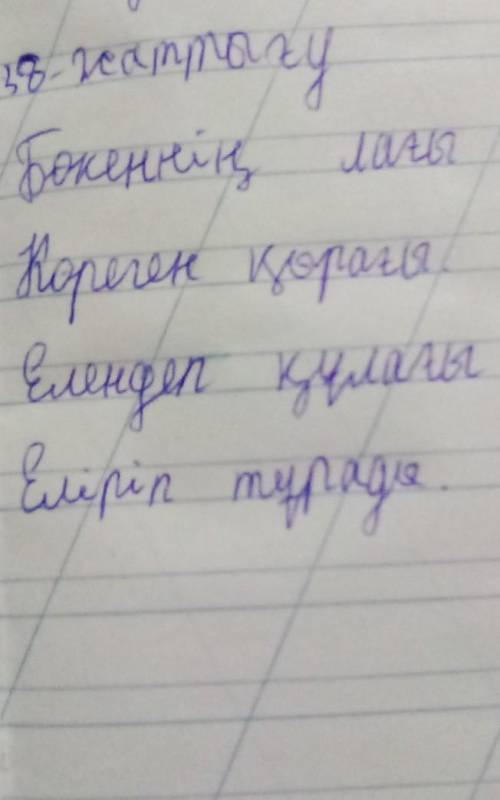 38-жаттығу
Бөкеннің лағы
Көреген қөрағы.
Елендеп құлағы
Еліріп тұрады.